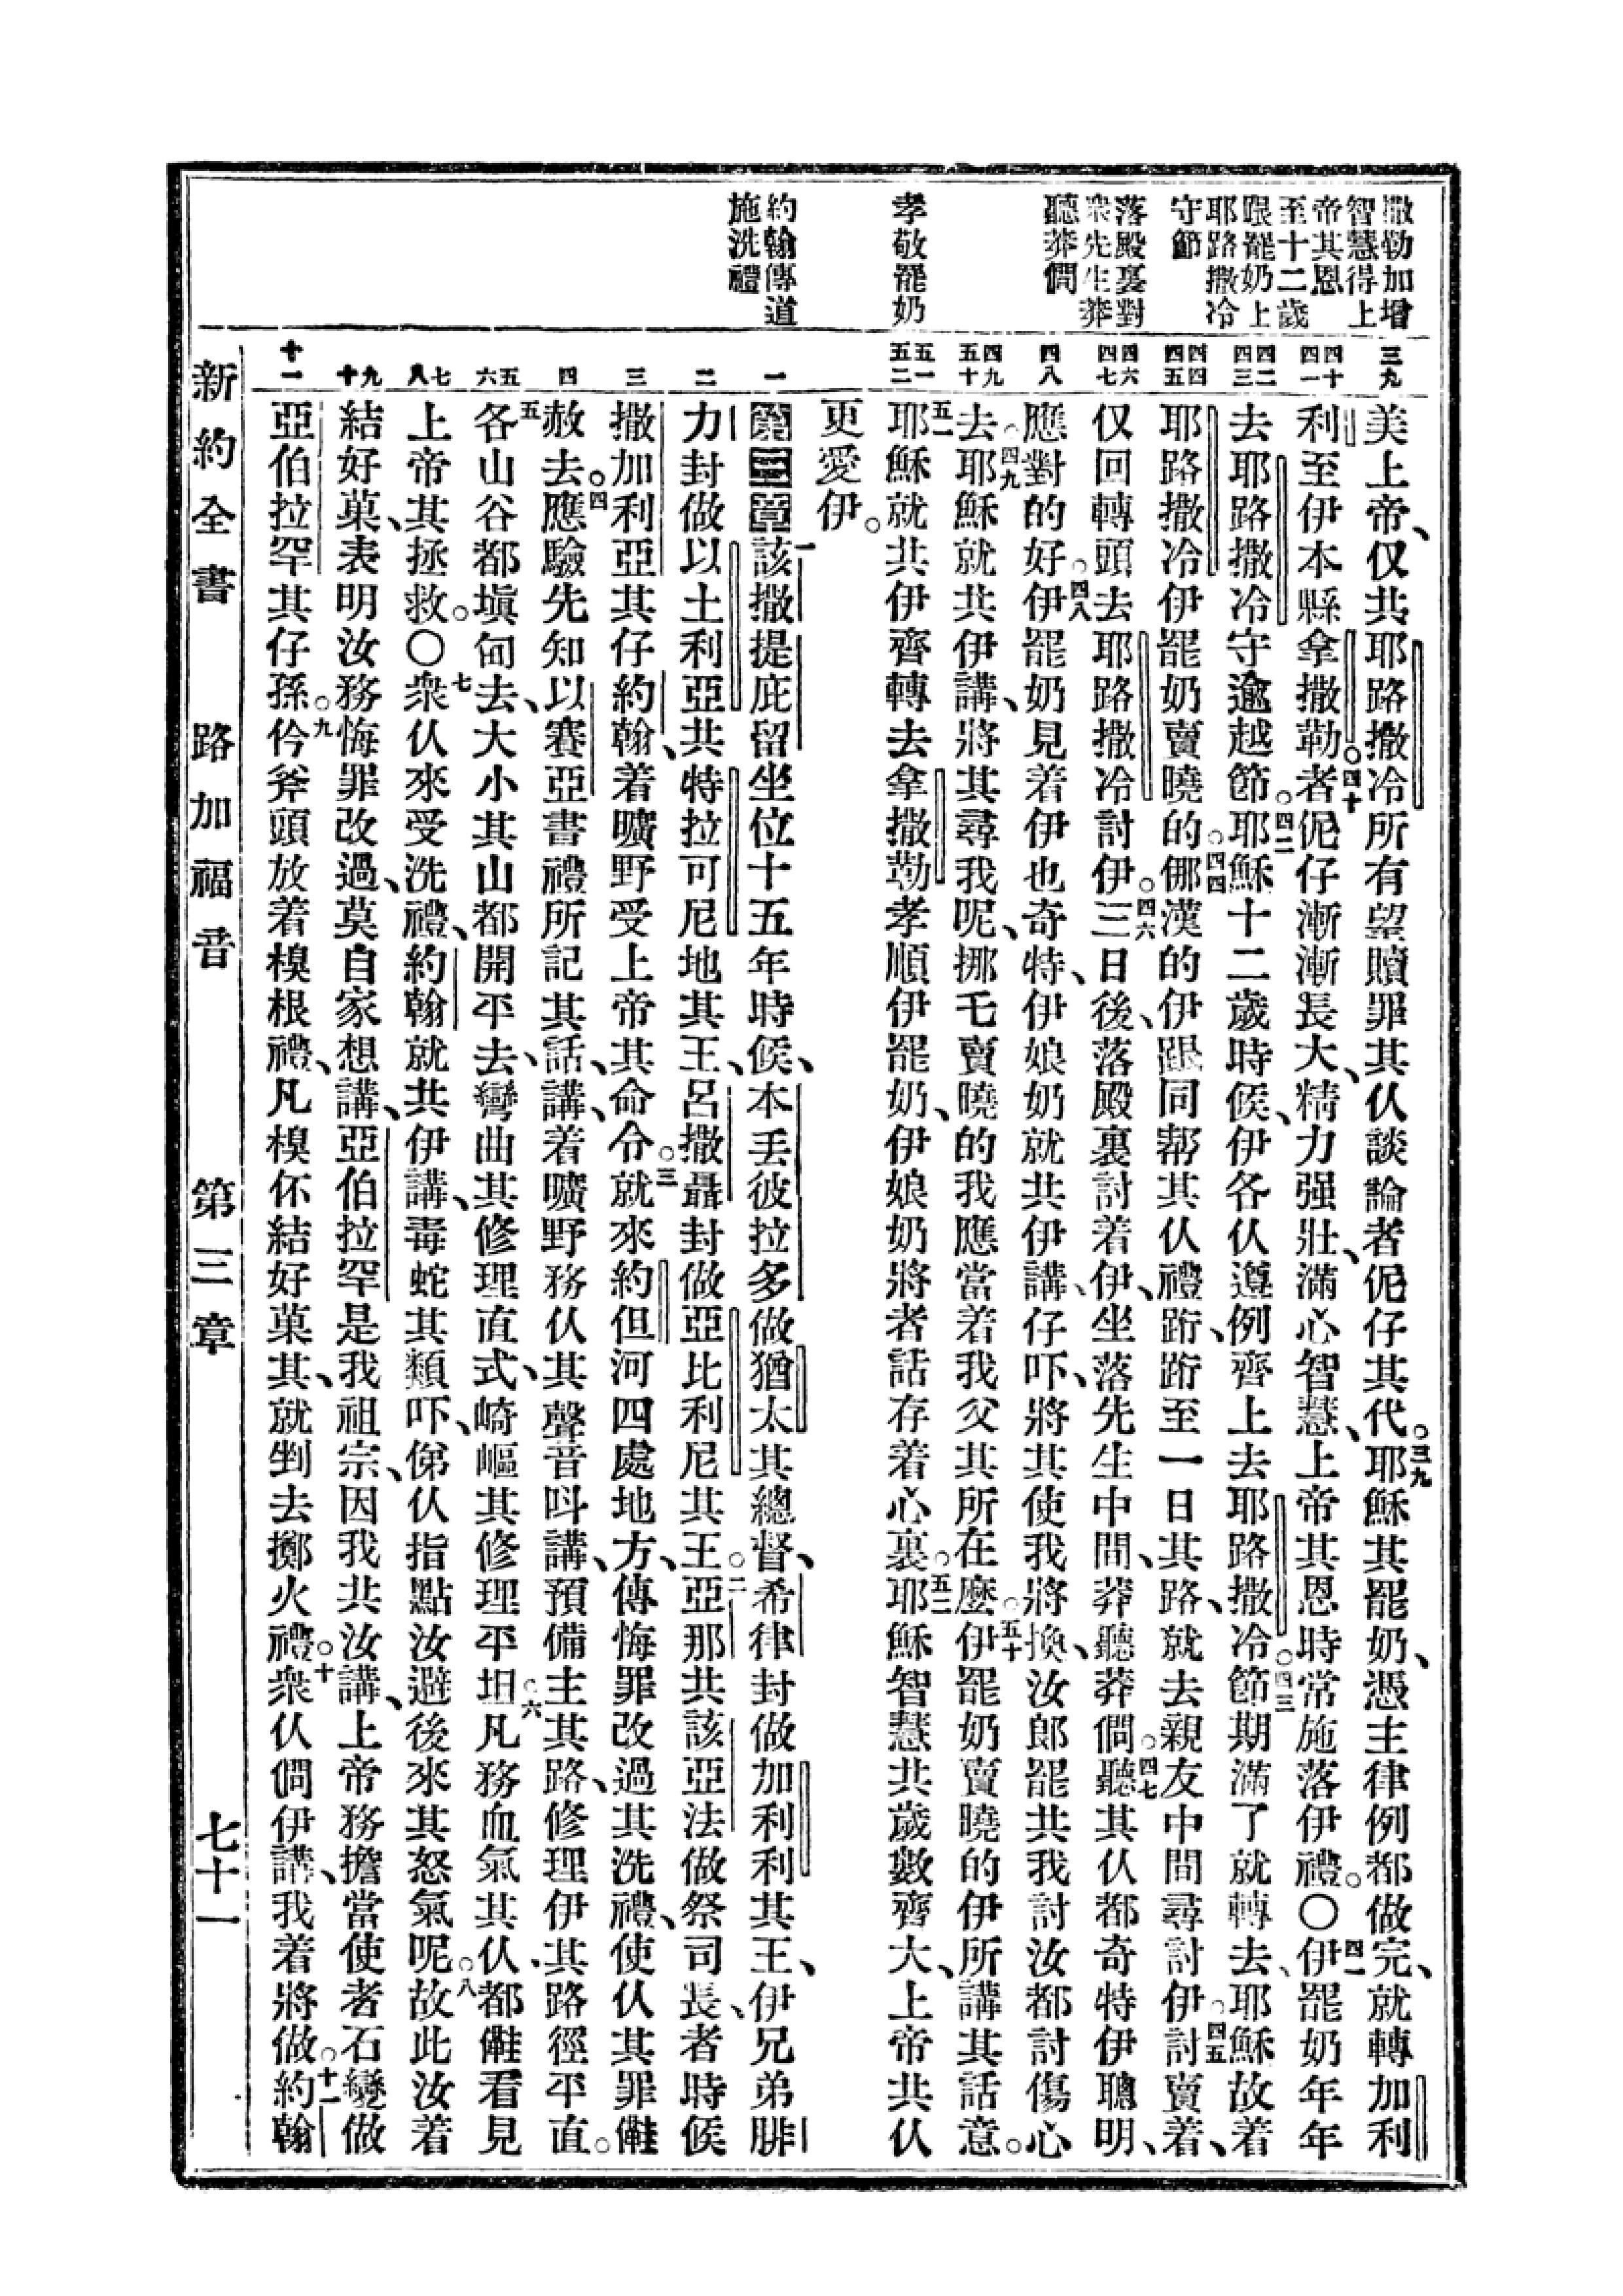 撒勒加增
智慧得上
帝其恩
至十二歲
跟罷奶上
耶路撒冷
守節
落殿裏對
衆先生莽
聽莽僩
孝敬罷奶
約翰傳道
施洗禮
三九
四十 四一
四二 四三
四四 四五
四六 四七
四八
四九 五十
五一 五二
一
二
三
四
五 六
七 八
九 十
十一
美上帝、仅共耶路撒冷所有望贖罪其仈談論者伲仔其代。三九耶穌其罷奶、憑主律例都做完、就轉加利
利至伊本縣拿撒勒。四十者伲仔漸漸長大、精力强壯、滿心智慧、上帝其恩時常施落伊禮。〇四一伊罷奶年年
去耶路撒冷守逾越節。四二耶穌十二歲時候、伊各仈遵例齊上去耶路撒冷。四三節期滿了就轉去、耶穌故着
耶路撒冷伊罷奶賣曉的。四四倻漢的伊跟同幇其仈禮跔、跔至一日其路、就去親友中間尋討伊。四五討賣着、
仅回轉頭去耶路撒冷討伊。四六三日後、落殿裏討着伊、坐落先生中間、莽聽莽僩。四七聽其仈都奇特伊聰明、
應對的好。四八伊罷奶見着伊也奇特、伊娘奶就共伊講、仔吓、將其使我將換、汝郎罷共我討汝都討傷心
去。四九耶穌就共伊講、將其尋我呢、挪乇賣曉的我應當着我父其所在麽。五十伊罷奶賣曉的伊所講其話意。
五一耶穌就共伊齊轉去拿撒勒孝順伊罷奶、伊娘奶將者話存着心裏。五二耶穌智慧共歲數齊大、上帝共仈
更愛伊。
第三章 一該撒提庇留坐位十五年時候、本丢彼拉多做猶太其總督、希律封做加利利其王、伊兄弟腓
力封做以土利亞共特拉可尼地其王、呂撒聶封做亞比利尼其王。二亞那共該亞法做祭司長、者時候
撒加利亞其仔約翰、着曠野受上帝其命令。三就來約但河四處地方、傳悔罪改過其洗禮、使仈其罪𠊎
赦去。四應驗先知以賽亞書禮所記其話、講、着曠野務仈其聲音叫講、預備主其路、修理伊其路徑平直。
五各山谷都塡甸去、大小其山都開平去、彎曲其修理直式、崎嶇其修理平坦。六凡務血氣其仈、都𠊎看見
上帝其拯救。〇七衆仈來受洗禮、約翰就共伊講、毒蛇其類吓、俤仈指點汝避後來其怒氣呢。八故此汝着
結好菓、表明汝務悔罪改過、莫自家想講、亞伯拉罕是我祖宗、因我共汝講、上帝務擔當使者石變做
亞伯拉罕其仔孫。九仱斧頭放着樹根禮、凡樹伓結好菓其、就剉去擲火禮。十衆仈僩伊講、我着將做。十一約翰
新約全書 路加福音 第三章 七十一